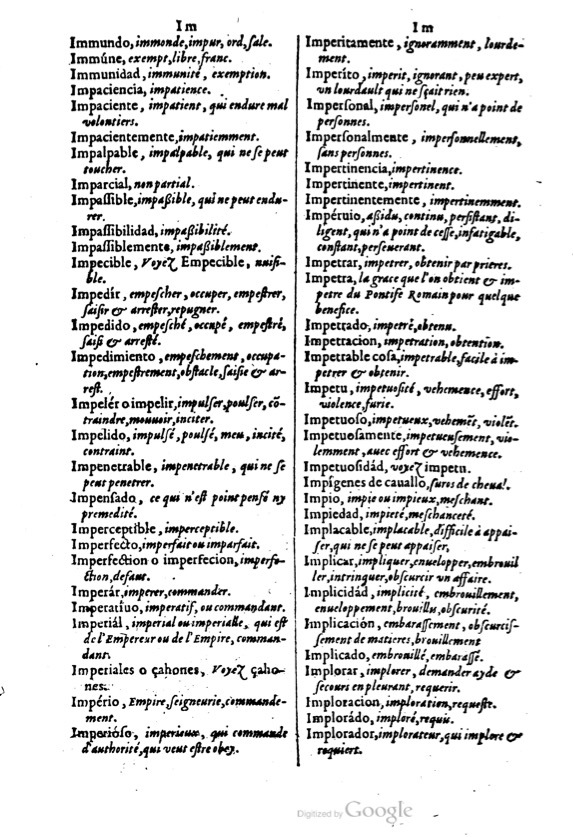 Im
Immundo, immonde, impur, ord, sale.
Immúne, exempt, libre, franc.
Immunidad, immunité, exemption.
Impaciencia, impatience.
Impaciente, impatient, qui endure mal
volontiers.
Impacientemente, impatiemment.
Impalpable, impalpable, qui ne se peut
toucher.
Imparcial, non partial.
Impaſſible, impaßible, qui ne peut endu-
rer.
Impaſſibilidad, impaßibilité.
Impaſſiblemente, impaßiblement.
Impecible, Voyez Empecible, nuiſi-
ble.
Impedír, empeſcher, occuper, empeſtrer,
ſaiſir & arreſter, repugner.
Impedido, empeſché, occupé, empeſtré,
ſaiſi & arreſté.
Impedimiento, empeſchement, occupa-
tion, empeſtrement, obſtacle, ſaiſie & ar-
reſt.
Impelér o impelir, impulſer, poulſer, cõ-
traindre, mouuoir, inciter.
Impelido, impulſé, poulſé, meu, incité,
contraint.
Impenetrable, impenetrable, qui ne ſe
peut penetrer.
Impenſado, ce qui n'eſt point penſé ny
premedité.
Imperceptible, imperceptible.
Imperfecto, imperfait ou imparfait.
Imperfection o imperfecion, imperfe-
ction, defaut.
Imperár, imperer, commander.
Imperatiuo, imperatif, ou commandant.
Imperiál, imperial ou imperialle, qui eſt
de l'Empereur ou de l'Empire, comman-
dant.
Imperiales o çahones, Voyez çaho-
nes.
Império, Empire, ſeigneurie, commande-
ment.
Imperióſo, imperieux, qui commande
d'authorité, qui veut eſtre obey.
Im
Imperitamente, ignoramment, lourde-
ment.
Imperíto, imperit, ignorant, peu expert,
vn lourdault qui ne ſçait rien.
Imperſonal, imperſonel, qui n'a point de
perſonnes.
Imperſonalmente, imperſonnellement,
ſans perſonnes.
Impertinencia, impertinence.
Impertinente, impertinent.
Impertinentemente, impertinemment.
Impéruio, aßidu, continu, perſiſtans, di-
ligent, qui n'a point de ceſſe, infatigable,
conſtant, perſeuerant.
Impetrar, impetrer, obtenir par prieres.
Impetra, la grace que l'on obtient & im-
petre du Pontife Romain pour quelque
benefice.
Impetrado, impetré, obtenu.
Impetracion, impetration, obtention.
Impetrable coſa, impetrable, facile à im-
petrer & obtenir.
Impetu, impetuoſité, vehemence, effort,
violence, furie.
Impetuoſo, impetueux, vehemẽt, violẽt.
Impetuoſamente, impetueuſement, vio-
lemment, auec effort & vehemence.
Impetuoſidád, voyez impetu.
Impígenes de cauallo, ſuros de cheual.
Impio, impie ou impieux, meſchant.
Impiedad, impieté, meſchanceté.
Implacable, implacable, difficile à appai-
ſer, qui ne ſe peut appaiſer,
Implicar, impliquer, enuelopper, embrouil
ler, intringuer, obſcurcir vn affaire.
Implicidád, implicité, embrouillement,
enueloppement, brouillu, obſcurité.
Implicación, embaraſſement, obſcurciſ-
ſement de matieres, brouillement
Implicado, embrouillé, embaraſſé.
Implorar, implorer, demander ayde &
ſecours en pleurant, requerir.
Imploracion, imploration, requeſte.
Implorádo, imploré, requis.
Implorador, implorateur, qui implore &
requiert.
Digitized by Google